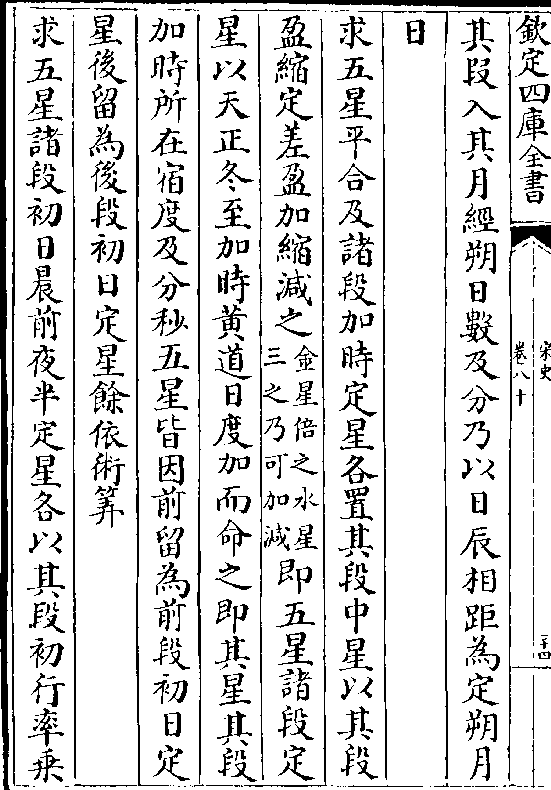 欽定四庫全書
宋史
卷八十
二十四
其段入其月經朔日數及分乃以日辰相距為定朔月
日
求五星平合及諸段加時定星各置其段中星以其段
盈縮定差盈加縮減之金星倍之水星三之乃可加減即五星諸段定
星以天正冬至加時黄道日度加而命之即其星其段
加時所在宿度及分秒五星皆因前留為前段初日定
星後留為後段初日定星餘依術筭
求五星諸段初日晨前夜半定星各以其段初行率乗